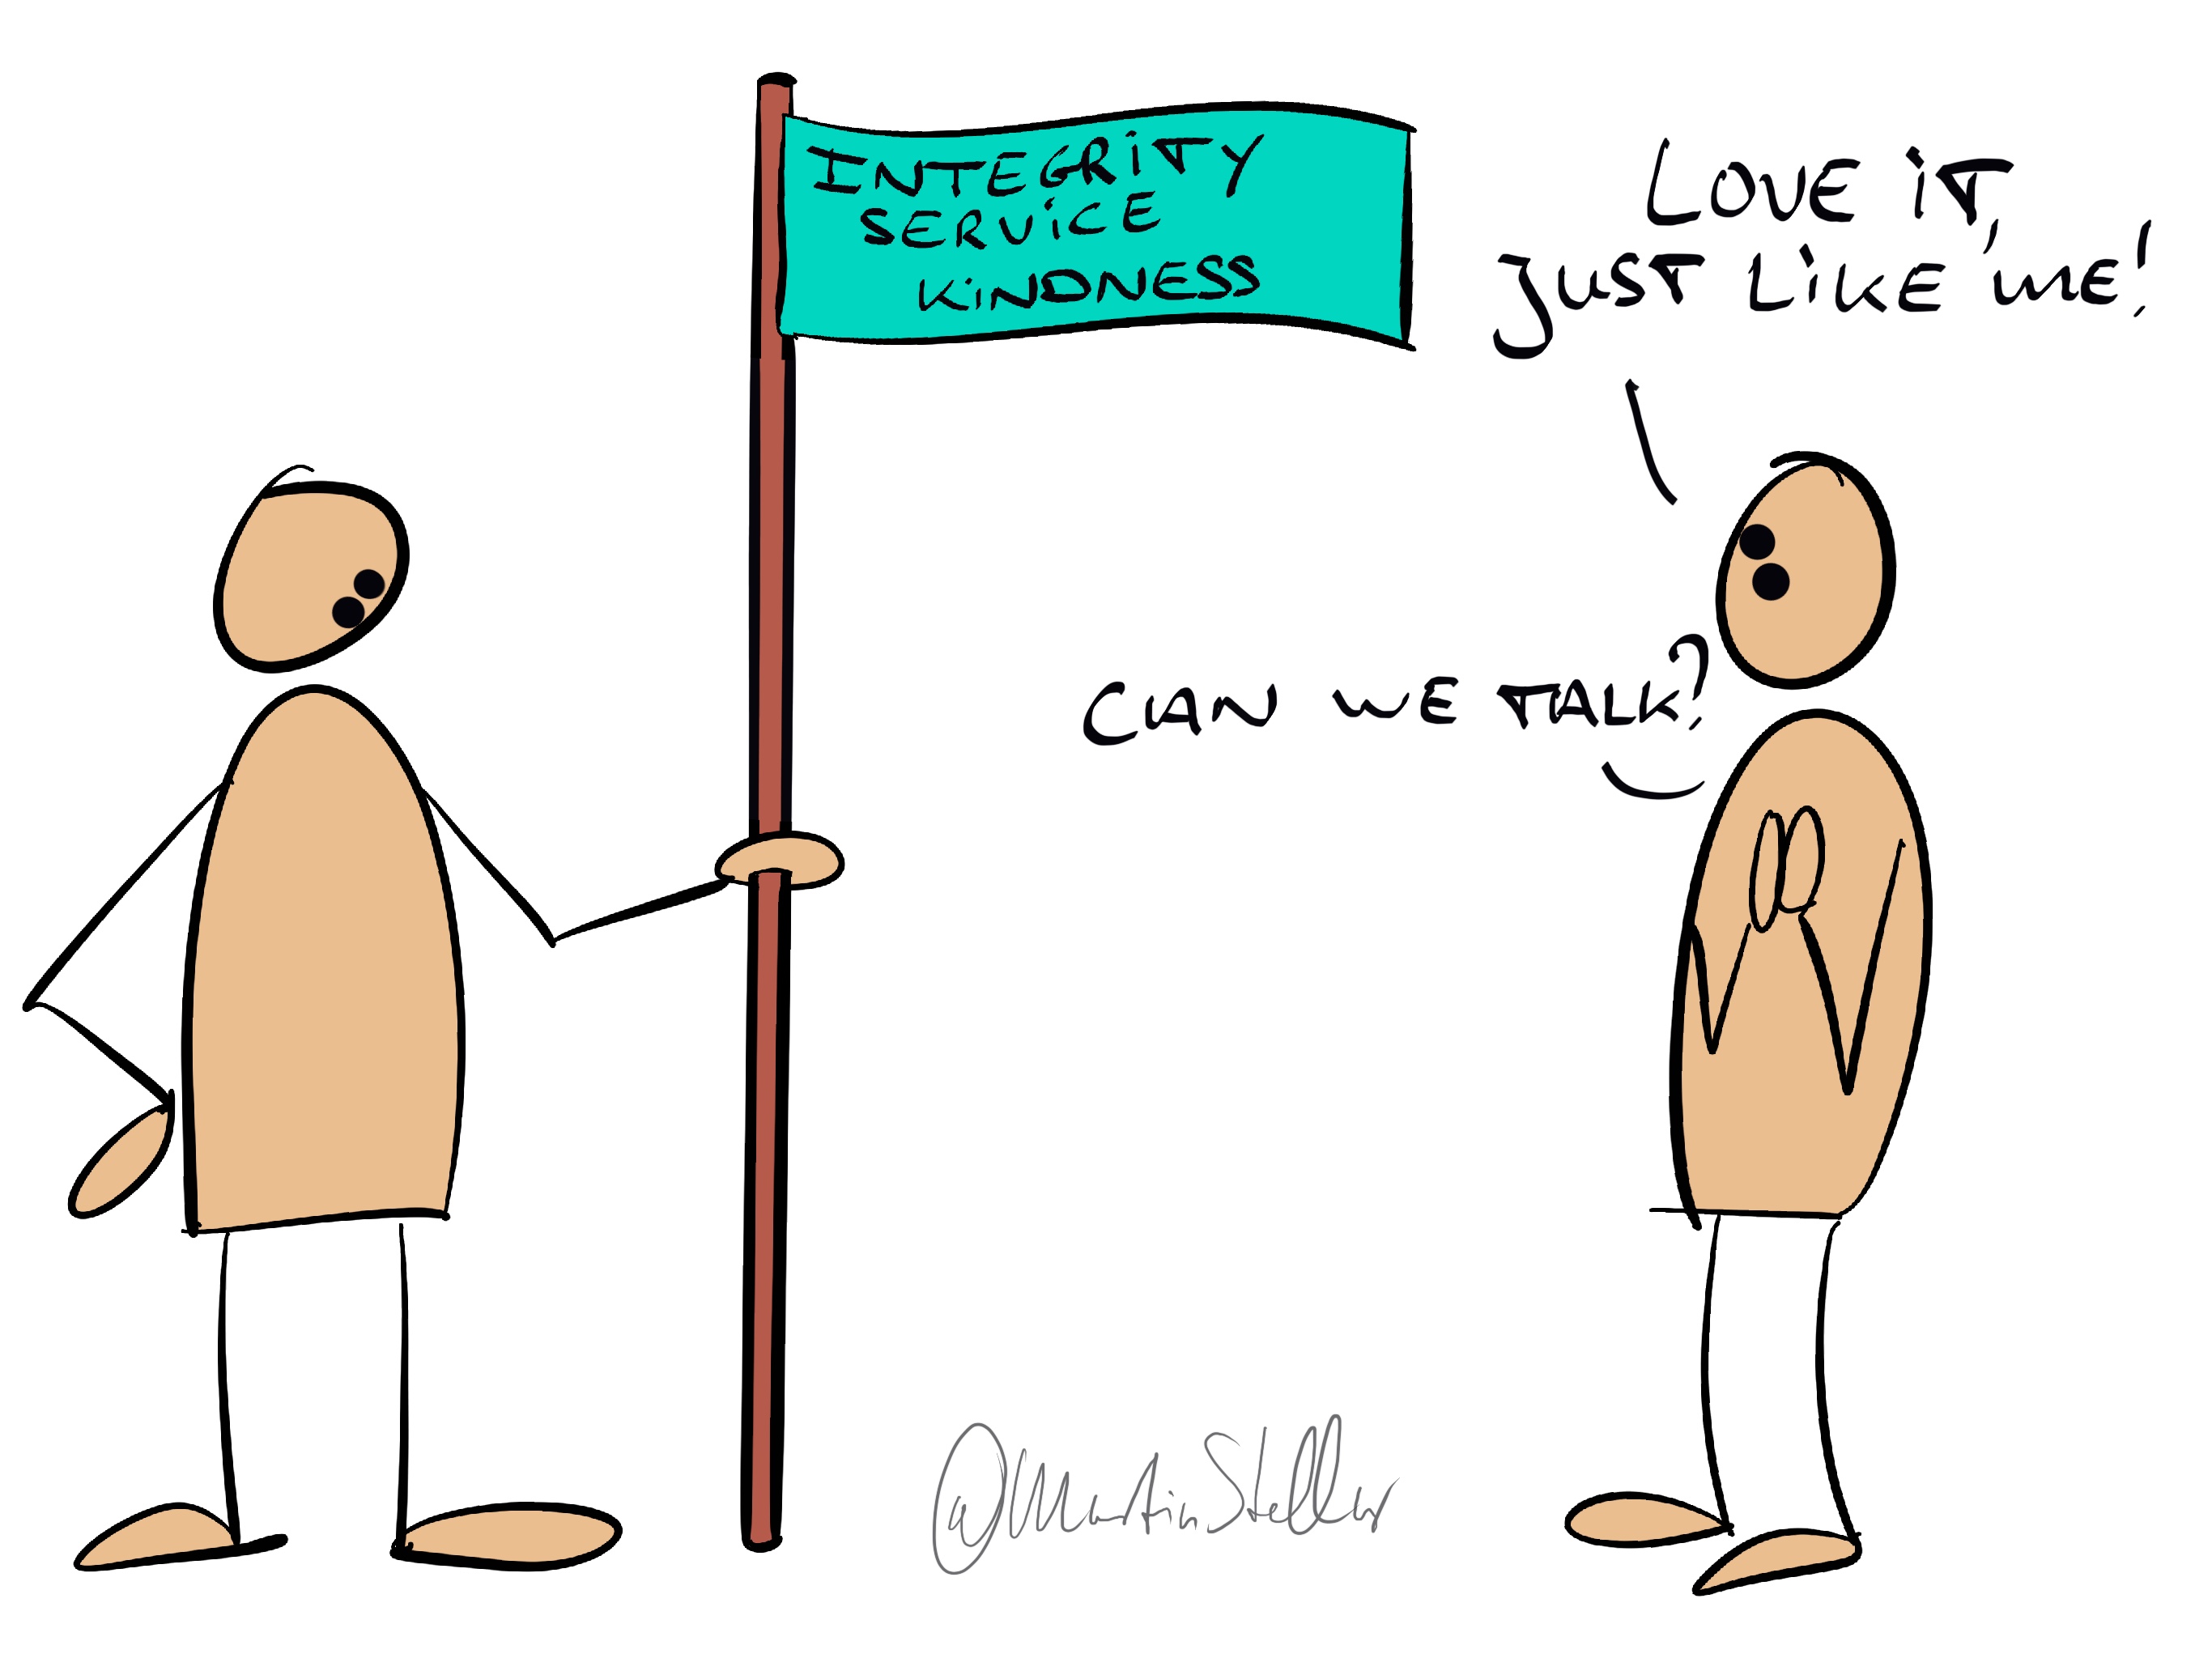 INTEGRITY
SERVICE
KINDNESS
LOVE IT,
JUST LIKE ME!
CAN WE TALK?
@MartinStellar